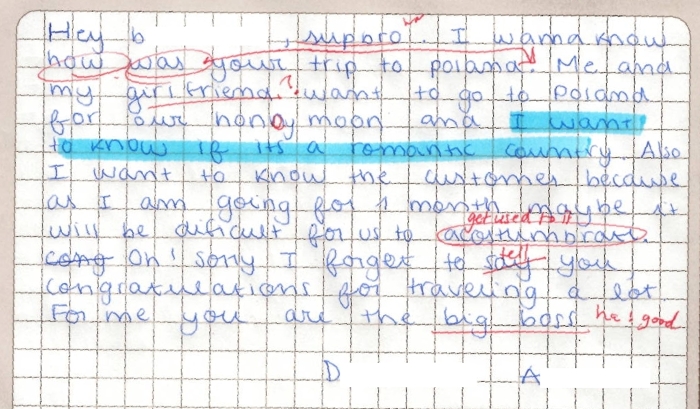 Hey b , suppro. I wanna know
how was your trip to poland. Me and
my girl friend ? want to go to Poland
for our honoy moon and I want
to know if its a romantic country. Also
I want to know the customes because
as I am going for 1 month maybe it
get used to it
will be dificult for us to acostumbrart.
tell
cong Oh! sorry I forget to say you
congratulations for traveling a lot
For me you are the big boss he! good
D A